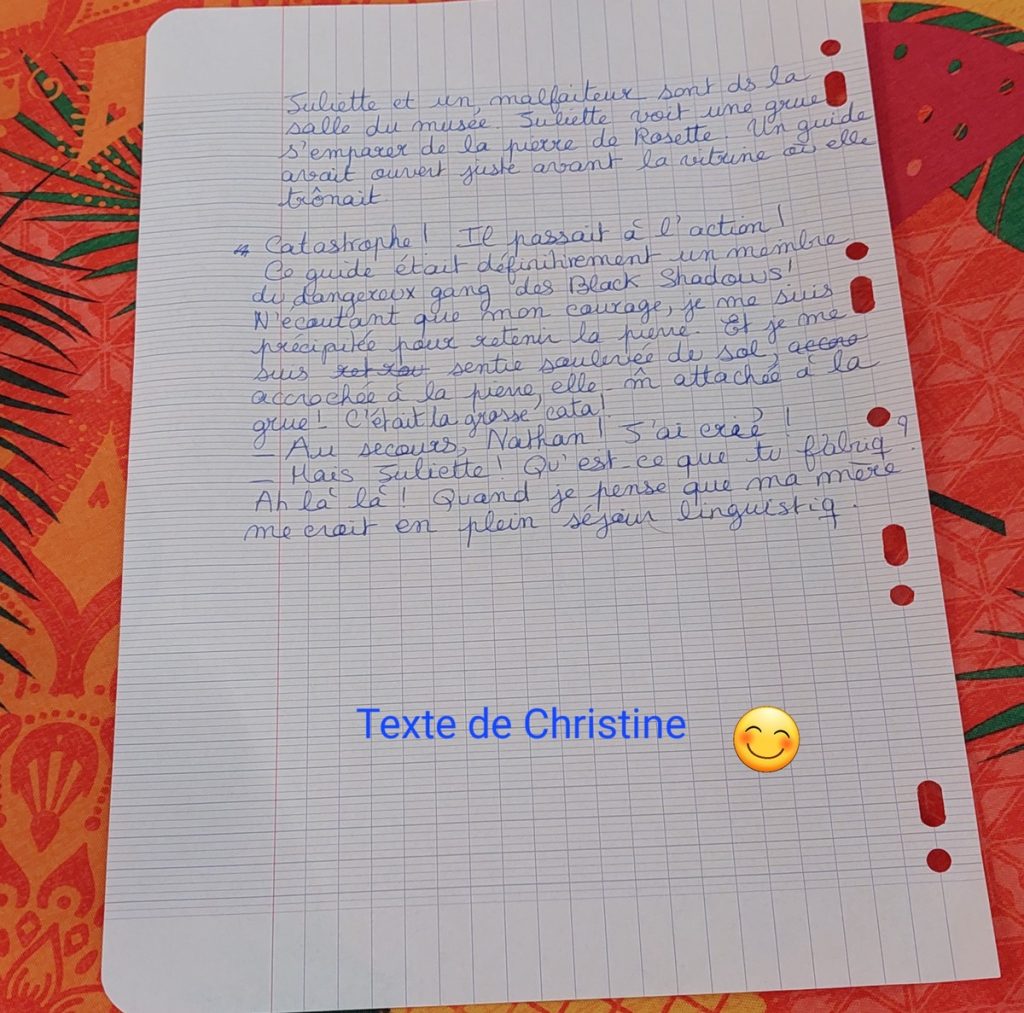 Juliette et un malfaiteur sont ds la
salle du musée. Juliette voit une grue
s'emparer de la pierre de Rosette. Un guide
avait ouvert juste avant la vitrine où elle
trônait
Catastrophe! Il passait à l'action!
Ce guide était définitivement un membre
du dangereux gang des Black Shadows!
N'écoutant que mon courage, je me suis
précipitée pour retenir la pierre. Et je me
suis sentie soulevée de sol, accro
accrochée à la pierre, elle-m̂ attachée à la
grue! C'était la grosse cata!
_ Au secours, Nathan! J'ai crié!
_ Mais Juliette! Qu'est-ce que tu fabriq?
Ah là là! Quand je pense que ma mère
me croit en plein séjour linguistiq.
Texte de Christine